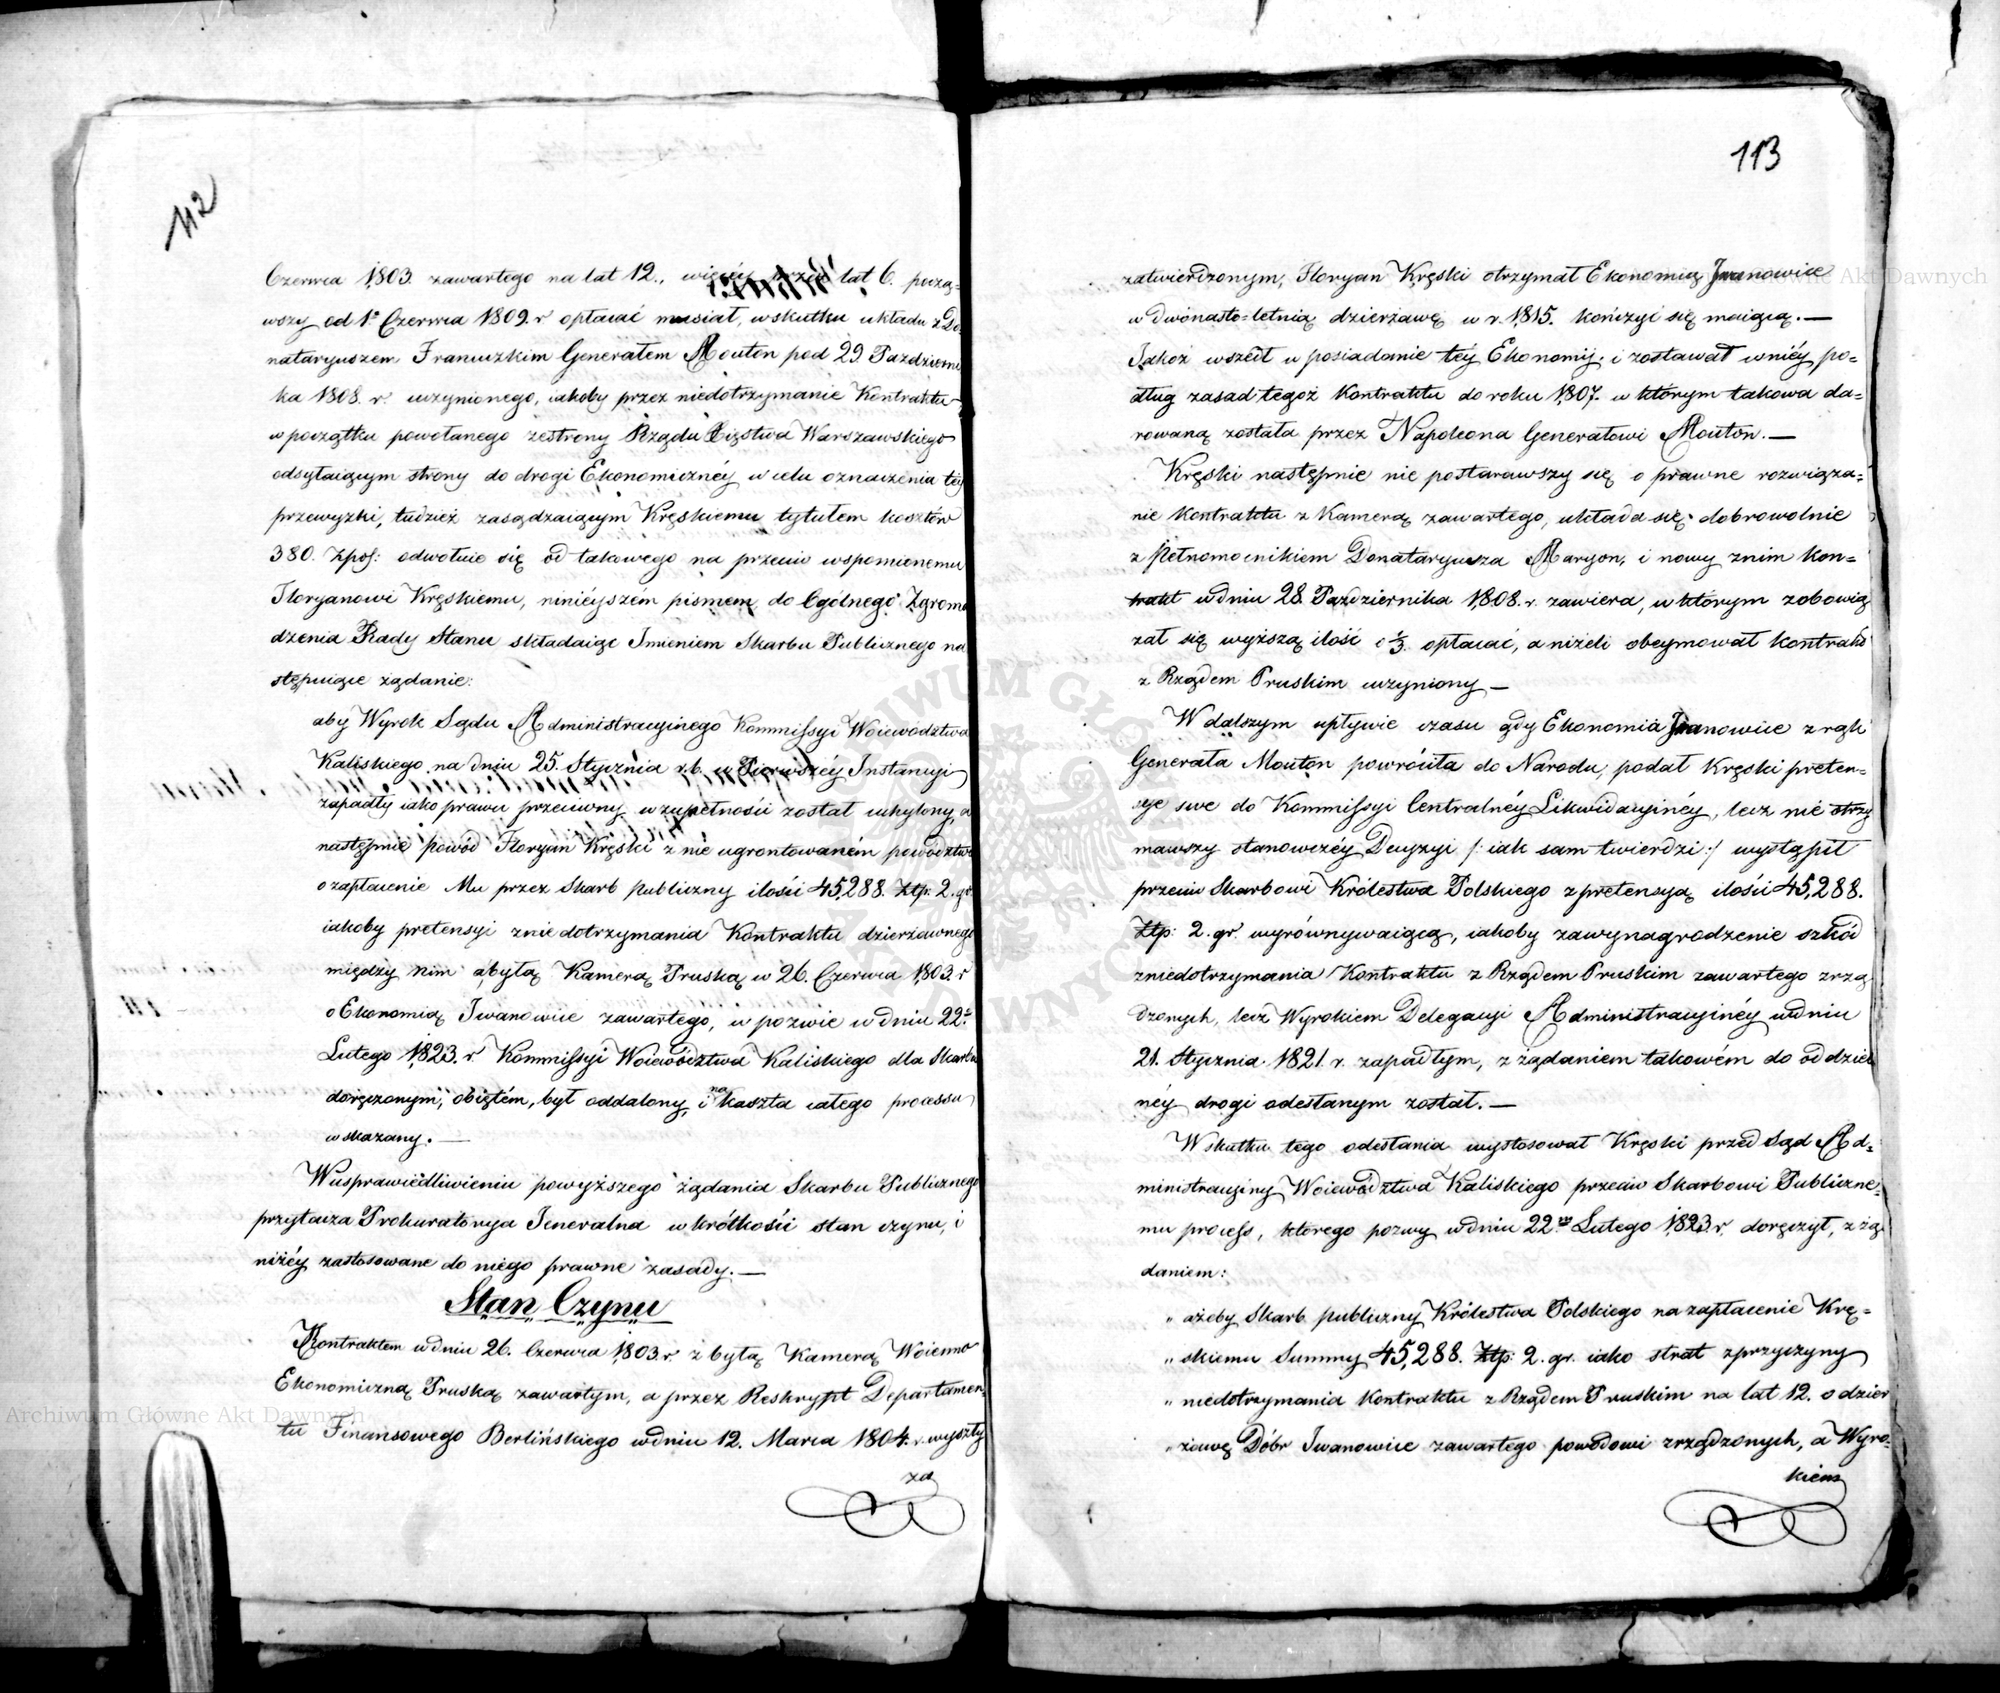 112
Czerwca 1803. zawartego na lat 12., więcéy przez lat 6. począ-
wszy od 1o Czerwca 1809. r opłacać musiał, w skutku układu z Do
nataryuszem Francuzkim Generałem Mouton pod 29 Pazdzierni
ka 1808. r. uczynionego, iakoby przez niedotrzymanie Kontraktu
w początku powołanego zestrony Rządu Xięstwa Warszawskiego
odsyłaiącym strony do drogi Ekonomicznéy w celu oznaczenia téy
przewyzki, tudzież zasądzaiącym Kręskiemu tytułem kosztów
380. Zpol: odwołuie się od takowego na przeciw wspomienemu
Floryanowi Kręskiemu, ninieyszém pismem do Ogólnego Zgroma
dzenia Rady Stanu składaiąc Imieniem Skarbu Publicznego na
stępuiące żądanie:
aby Wyrok Sądu Administracyinego Kommissyi Woiewodztwa
Kaliskiego na dniu 25. Stycznia r.b. w Pierwszéy Instancyi
zapadły iako prawu przeciwny w zupełności został uchylony, a
następnie powód Floryan Kręski z nie ugrontowaném powództwem
o zapłacenie Mu przez Skarb publiczny ilości 45,288. Złp: 2. gr.
iakoby pretensyi z nie dotrzymania Kontraktu dzierżawnego
między nim a byłą Kamerą Pruską w 26. Czerwca 1803. r
o Ekonomią Iwanowice zawartego, w pozwie w dniu 22o
Lutego 1823. r. Kommissyi Woiewództwa Kaliskiego dla Skarbu
doręczonym, obiętém, był oddalony i na koszta całego processu
wskazany. —
W usprawiedliwieniu powyższego żądania Skarbu Publicznego
przytacza Prokuratorya Jeneralna w krótkości stan czynu, i
niżéy zastosowane do niego prawne zasady. —
Stan Czynu
Kontraktem w dniu 26. Czerwca 1803. r. z byłą Kamerą Woienno
Ekonomiczną Pruską zawartym, a przez Reskrypt Departamen-
tu Finansowego Berlińskiego w dniu 12. Marca 1804. r. wyszły
za
113
zatwierdzonym, Floryan Kręski otrzymał Ekonomią Iwanowice
w dwónasto-letnią dzierżawę w r. 1815. kończyć się maiącą. —
Jakoż wszedł w posiadanie téy Ekonomij i zostawał w niéy po-
dług zasad tegoż Kontraktu do roku 1807. w którym takowa da-
rowaną została przez Napoleona Generałowi Mouton. —
Kręski następnie nie postarawszy się o prawne rozwiąza-
nie Kontraktu z Kamerą zawartego, układa się dobrowolnie
z Pełnomocnikiem Donataryusza Maryon, i nowy z nim Kon-
trakt w dniu 28. Pazdziernika 1808. r. zawiera, w którym zobowią
zał się wyższą ilość o 1/3. opłacać, a niżeli obeymował Kontrakt
z Rządem Pruskim uczyniony —
W dalszym upływie czasu gdy Ekonomia Iwanowice z rąk
Generała Mouton powróciła do Narodu, podał Kręski preten-
sye swe do Kommissyi Centralnéy Likwidacyinéy, lecz nie otrzy
mawszy stanowczéy Decyzyi /: iak sam twierdzi :/ wystąpił
przeciw Skarbowi Królestwa Polskiego z pretensyą ilości 45,288.
Złp: 2. gr. wyrównywaiącą, iakoby za wynagrodzenie szkód
z niedotrzymania Kontraktu z Rządem Pruskim zawartego zrzą
dzonych, lecz Wyrokiem Delegacyi Administracyinéy w dniu
21. Stycznia 1821. r. zapadłym, z żądaniem takowém do oddziel
néy drogi odesłanym został. —
W skutku tego odesłania wystosował Kręski przed Sąd Ad-
ministracyiny Woiewództwa Kaliskiego przeciw Skarbowi Publiczne-
mu process, którego pozwy w dniu 22go Lutego 1823 r. doręczył, z żą
daniem:
„ ażeby Skarb publiczny Królestwa Polskiego na zapłacenie Krę-
„ skiemu Summy 45,288. Złp: 2. gr. iako strat z przyczyny
„ niedotrzymania Kontraktu z Rządem Pruskim na lat 12. o dzier
„ żawę Dóbr Iwanowice zawartego powodowi zrządzonych, a Wyro-
kiem